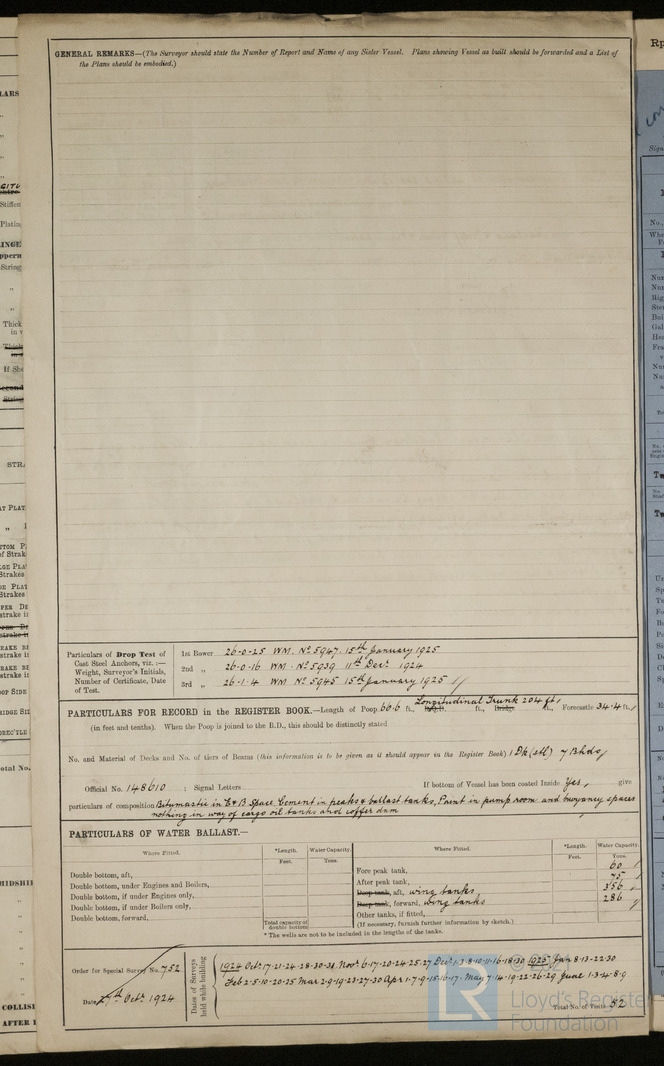 GENERAL REMARKS—(The Surveyor should state the Number of Report and Name of any Sister Vessel. Plans showing Vessel as built should be forwarded and a List of
the Plans should be embodied.)
Particulars of Drop Test of
Cast Steel Anchors, viz. :—
Weight, Surveyor's Initials,
Number of Certificate, Date
of Test.
1st Bower 26-0-25 WM. No 5947. 15th January 1925
2nd „ 26-0-16 WM. No 5939 11th Decr 1924
3rd „ 26-1-4 WM No 5945 15th January 1925
PARTICULARS FOR RECORD in the REGISTER BOOK.—Length of Poop 60.6 ft., Longitudinal Trunk 204 ft, Bridge ft., Forecastle 34.4 ft.
(in feet and tenths). When the Poop is joined to the B.D., this should be distinctly stated
No. and Material of Decks and No. of tiers of Beams (this information is to be given as it should appear in the Register Book) 1 Dk (stl) 7 Bhds
Official No. 148610 ; Signal Letters If bottom of Vessel has been coated Inside Yes, give
particulars of composition Bitumastic in E & B Space. Cement in peaks & ballast tanks, Paint in pump room and buoyancy spaces
nothing in way of cargo oil tanks and coffer dam
PARTICULARS OF WATER BALLAST.—
Where Fitted. *Length. Water Capacity. Where Fitted. *Length. Water Capacity.
Feet. Tons. Feet. Tons.
Double bottom, aft,
Double bottom, under Engines and Boilers,
Double bottom, if under Engines only,
Double bottom, if under Boilers only,
Double bottom, forward,
Total capacity of
double bottom
Fore peak tank, 60
After peak tank, 75
Deep tank, aft, wing tanks 356
Deep tank, forward, wing tanks 286
Other tanks, if fitted,
(If necessary, furnish further information by sketch.)
* The wells are not to be included in the lengths of the tanks.
Order for Special Survey No. 752
Date 27th Octr 1924
Dates of Surveys
held while building
1924 Oct. 17-21-24-28-30-31 Nov. 6-17-20-24-25-27 Dec. 1-3-8-10-11-16-18-30 1925 Jan 8-13-22-30
Feb 2-5-10-20-25 Mar 2-9-19-23-27-30 Apr 1-7-9-15-16-17- May 7-14-19-22-26-29 June 1-3-4-8-9
Total No. of Visits 52
Lloyd's Register
Foundation